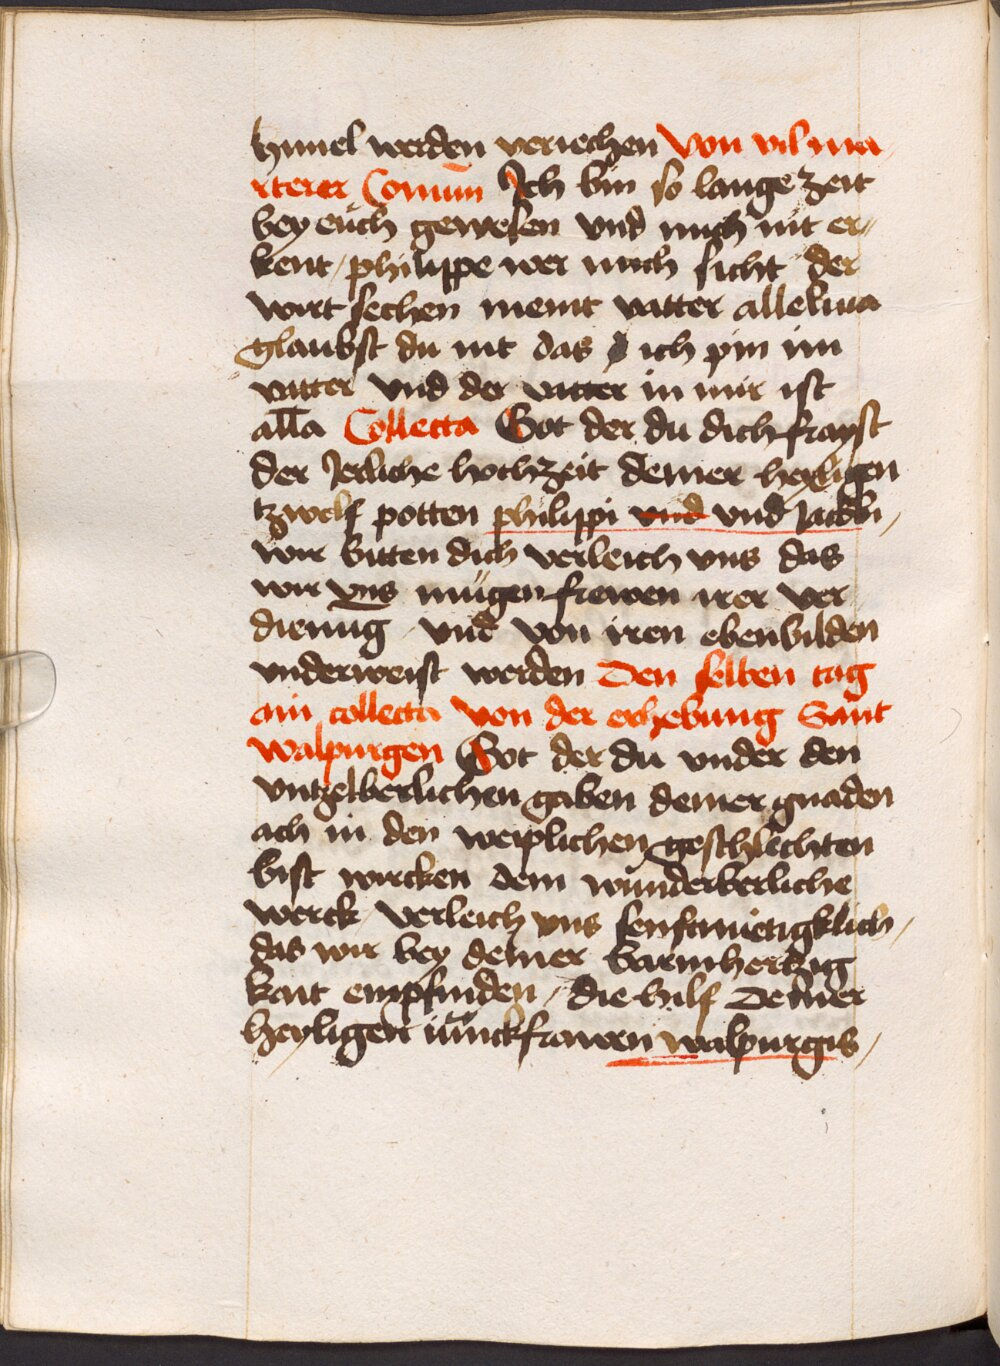 himel werden veriechen Von vil ma
rterer Comūn Ich bin so lange zeit
bey euch gewesen vnd mich nit er-
kent / philippe wer mich sicht der
wirt sechen meint vatter alleluia
glaubst du nit das ich pin im
vatter vnd der vatter in mir ist
alla Collecta Got der du dich frayst
der Jerliche hochzeit deiner heyligen
tzwelf potten philippi vnd vnd Jacobi /
wir bitten dich verleich vns das
wir vns mügen frewen irer ver
dienug vnd von iren ebenbilden
vnderweist werden Den selben tag
ain collecta von der erhebung Sant
walpurgen Got der du vnder den
vntzelberlichen gaben deiner gnaden
ach in den weiplichen geschlechten
bist wircken dein wunderberliche
werck / verleich vns senftmietigklich /
das wir bey deiner barmhertzig
kait empfinden / die hilf deiner
heyligen iunckfrawen walpurgis /